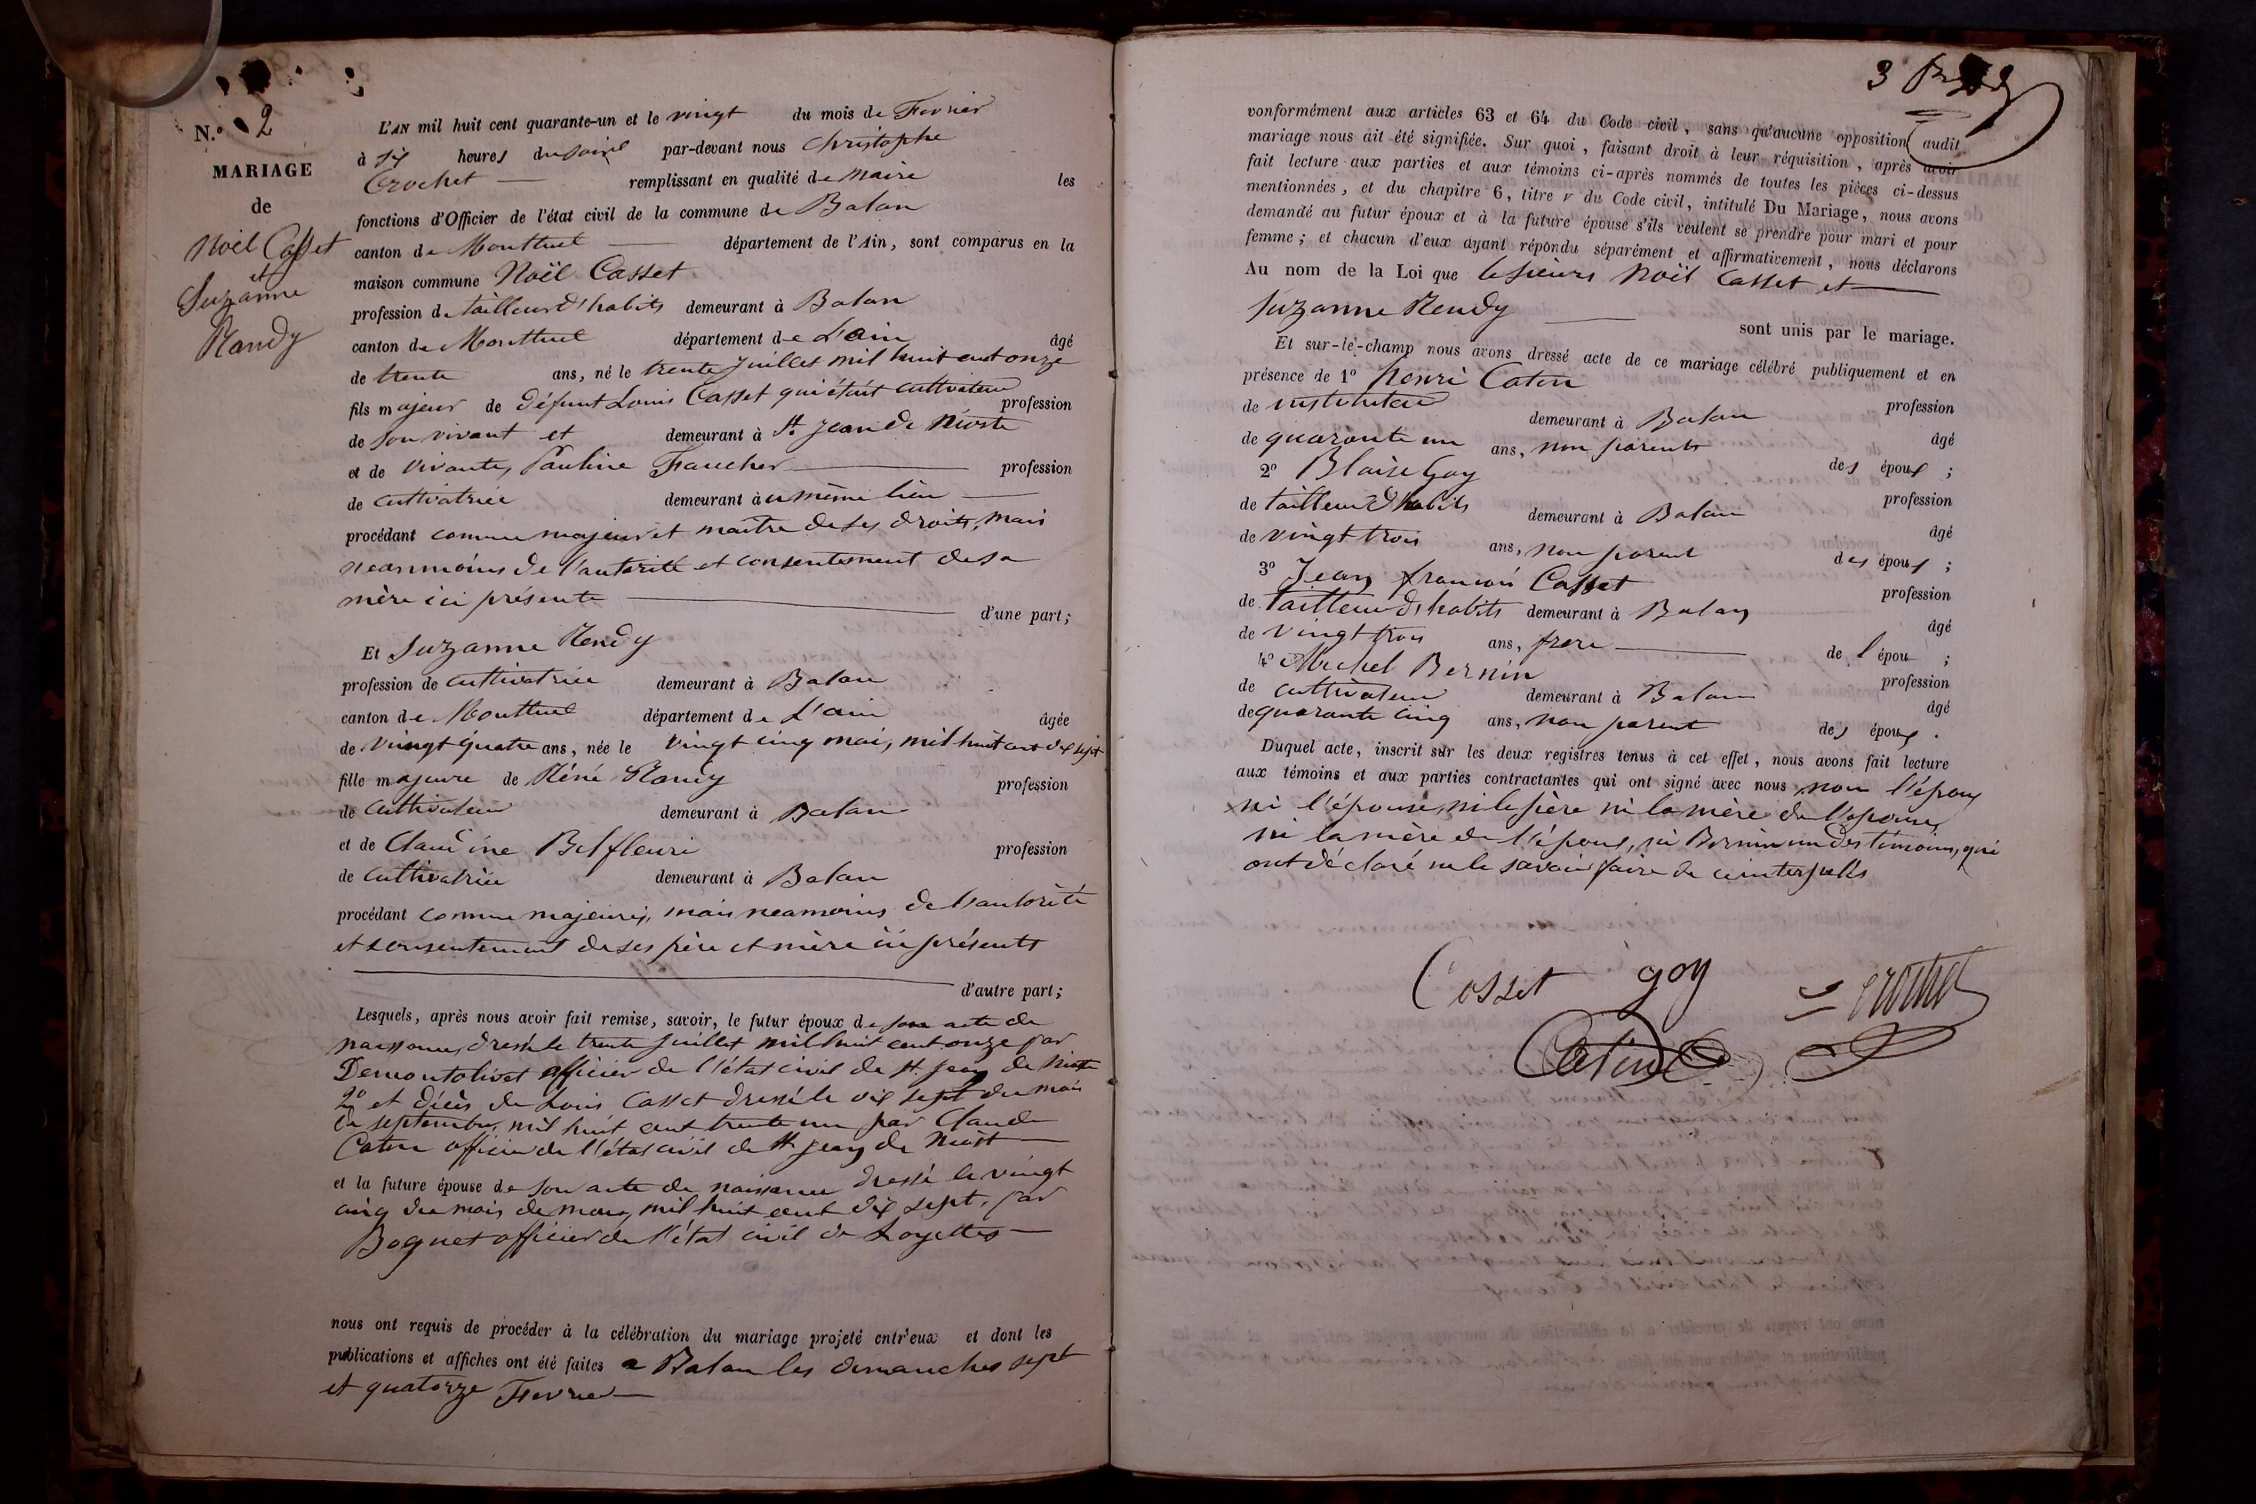 N.º 2
MARIAGE
de
Noël Casset
et
Suzanne
Randy
L'AN mil huit cent quarante-un et le vingt du mois de Fevrier
à six heures du soir par-devant nous Christophe
Crochet remplissant en qualité de Maire les
fonctions d'Officier de l'état civil de la commune de Balan
canton de Montluel département de l'Ain, sont comparus en la
maison commune Noël Casset
profession de tailleur d'habits demeurant à Balan
canton de Montluel département de L'ain âgé
de trente ans, né le trente juillet mil huit cent onze
fils majeur de défunt Louis Casset qui était cultivateur profession
de son vivant et demeurant à St Jean de Nioste
et de vivante, Pauline Faucher profession
de cultivatrice demeurant au même lieu
procédant comme majeur et maitre de ses droits, mais
neanmoins de l'autorité et consentement de sa
mère ici présente d'une part;
Et Suzanne Rendy
profession de cultivatrice demeurant à Balan
canton de Montluel département de L'ain âgée
de vingt quatre ans, née le vingt cinq mai, mil huit cent dix sept
fille majeure de Réné Randy profession
de cultivateur demeurant à Balan
et de Claudine Belfleuri profession
de cultivatrice demeurant à Balan
procédant comme majeure, mais neamoins de l'autorité
et consentement de ses père et mère ici présents
d'autre part;
Lesquels, après nous avoir fait remise, savoir, le futur époux de son acte de
naissance, dressé le trente juillet mil huit cent onze par
Demontolivet officier de l'état civil de St Jean de Nioste
2º et décès de Louis Casset dressé le dix sept du mois
de septembre, mil huit cent trente un par Claude
Catin officier de l'état civil de St Jean de Niost
et la future épouse de son acte de naissance dressé le vingt
cinq du mois de mars, mil huit cent dix sept, par
Boguet officier de l'état civil de Loyettes
nous ont requis de procéder à la célébration du mariage projeté entr'eux et dont les
publications et affiches ont été faites a Balan les dimanches sept
et quatorze Fevrier
3
conformément aux articles 63 et 64 du Code civil, sans qu'aucune opposition audit
mariage nous ait été signifiée. Sur quoi, faisant droit à leur réquisition, après avoir
fait lecture aux parties et aux témoins ci-après nommés de toutes les pièces ci-dessus
mentionnées, et du chapitre 6, titre v du Code civil, intitulé Du Mariage, nous avons
demandé au futur époux et à la future épouse s'ils veulent se prendre pour mari et pour
femme; et chacun d'eux ayant répondu séparément et affirmativement, nous déclarons
Au nom de la Loi que le sieurs Noël Casset et
Suzanne Rendy sont unis par le mariage.
Et sur-le-champ nous avons dressé acte de ce mariage célébré publiquement et en
présence de 1º henri Catin profession
de instituteur demeurant à Balan âgé
de quarante un ans, non parents des époux;
2º Blaise Goy profession
de tailleur d'habits demeurant à Balan âgé
de vingt trois ans, non parent des époux;
3º Jean françois Casset profession
de Tailleur d'habits demeurant à Balan âgé
de vingt trois ans, frere de l'épou;
4º Michel Bernin profession
de cultivateur demeurant à Balan âgé
de quarante cinq ans, non parent des époux.
Duquel acte, inscrit sur les deux registres tenus à cet effet, nous avons fait lecture
aux témoins et aux parties contractantes qui ont signé avec nous non l'époux
ni l'épouse, ni le père ni la mère de l'épouse,
ni la mère de l'époux, ni Bernin un des témoins, qui
ont déclaré ne le savoir faire de ce interpellés
Cosset goy Crochet
Catin